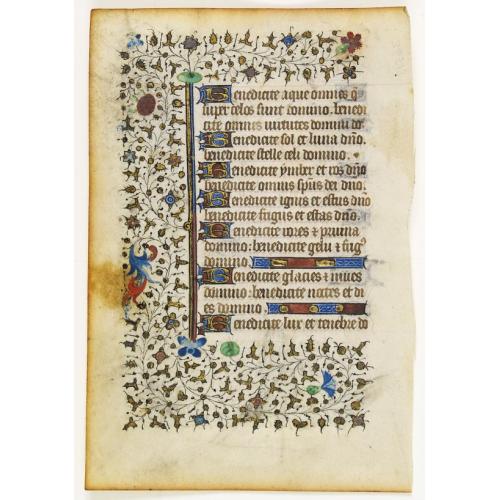 Benedicite aque omnes q̄
super celos sunt domino. benedi
cite omnes uirtutes domini do
Benedicite sol et luna dn̄o
benedicite stelle celi domino.
Benedicite ymber et ros dn̄o
benedicite omnis sp̄us dei dn̄o.
Benedicite ignis et estus dn̄o
benedicite frigus et estas dn̄o.
Benedicite rores & pruina
domino: benedicite gelu & frig᷒
domino.
Benedicite glacies & niues
domino: benedicite noctes et di
es domino.
Benedicite lux et tenebre do